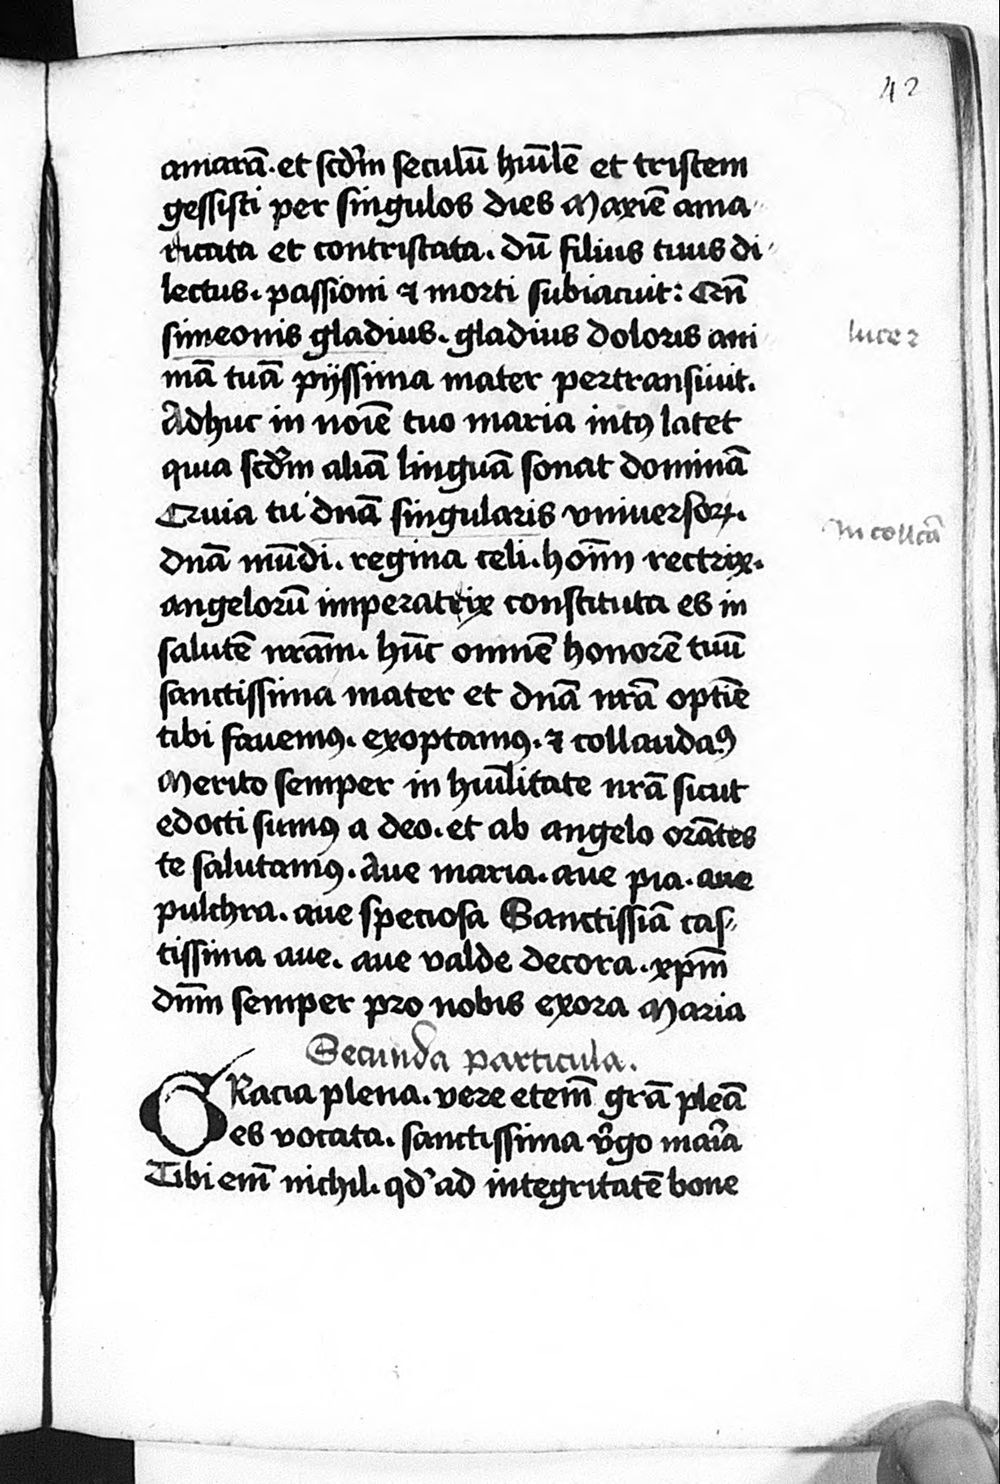 42
amarā. et scd̄m seculū hūilē et tristem
gessisti per singulos dies Maxīe ama
ricata et contristata. dū filius tuus di
lectus. passioni ⁊ morti subiacuit: Cūī
simeonis gladius. gladius doloris ani
luce 2
mā tuā pijssima mater pertransiuit.
Adhuc in noīe tuo maria intꝰ latet
quia scd̄m aliā linguā sonat dominā
Quia tu dnā singularis vniuersoꝝ.
In collcā
dnā mūdi. regina celi. hoīm rectrix.
angelorū imperatrix constituta es in
salutē nrām. hūc omnē honorē tuū
sanctissima mater et dnā nrā optīe
tibi fauemꝰ. exoptamꝰ. ⁊ collaudaꝰ
Merito semper in hūilitate nrā sicut
edocti sumꝰ a deo. et ab angelo orātes
te salutamꝰ. Aue maria. aue pia. aue
pulchra. aue speciosa Sanctissīa cas
tissima aue. aue valde decora. xp̄m
dn̄m semper pro nobis exora Maria
Secunda particula.
GRacia plena. vere etem̄ grā pleā
es vocata. sanctissima v̾go maīa
Tibi em̄ nichil. qd̾ ad integritatē bone